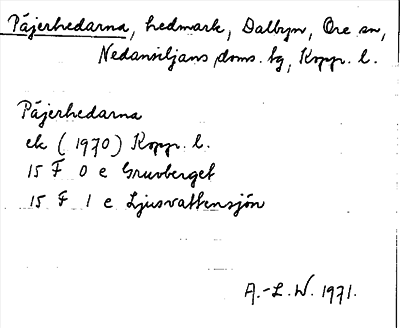 Päjerhedarna, hedmark, Dalbyn, Ore sn,
Nedansiljans doms. bg, Kopp. l.
Päjerhedarna
ek (1970) Kopp. l.
15 F 0 e Gruvberget
15 F 1 e Ljusvattensjön
A.-L.W. 1971.